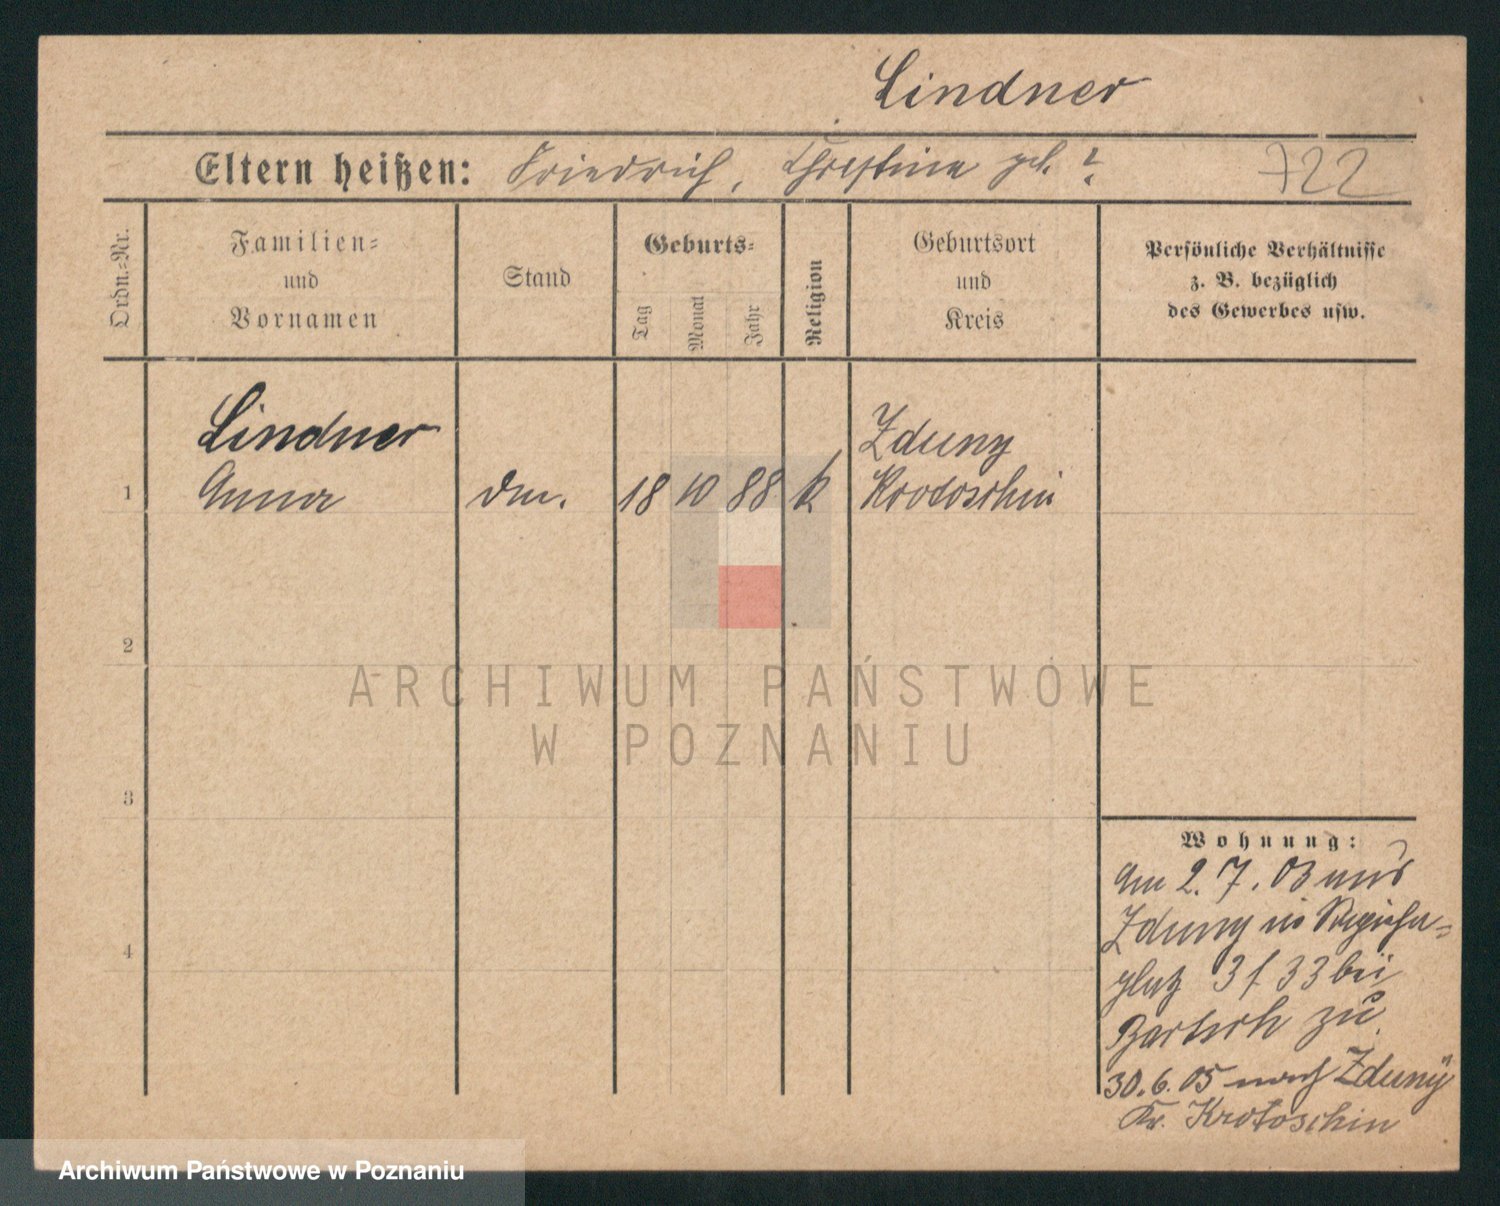 Lindner
Eltern heißen: Friedrich, Christine geb. ?
722
Ordn.=Nr.
Familien=
und
Vornamen
Stand
Geburts=
Tag
Monat
Jahr
Religion
Geburtsort
und
Kreis
Persönliche Verhältnisse
z. B. bezüglich
des Gewerbes usw.
Lindner
Zduny
1 Anna 18 10 88 k Krotoschin
2
3
4
Wohnung:
Am 2. 7. 03 aus
Zduny in
platz 3 f 33 bei
Bartsch zu
30. 6. 05 nach Zduny
Kr. Krotoschin
ARCHIWUM PAŃSTWOWE
W POZNANIU
Archiwum Państwowe w Poznaniu